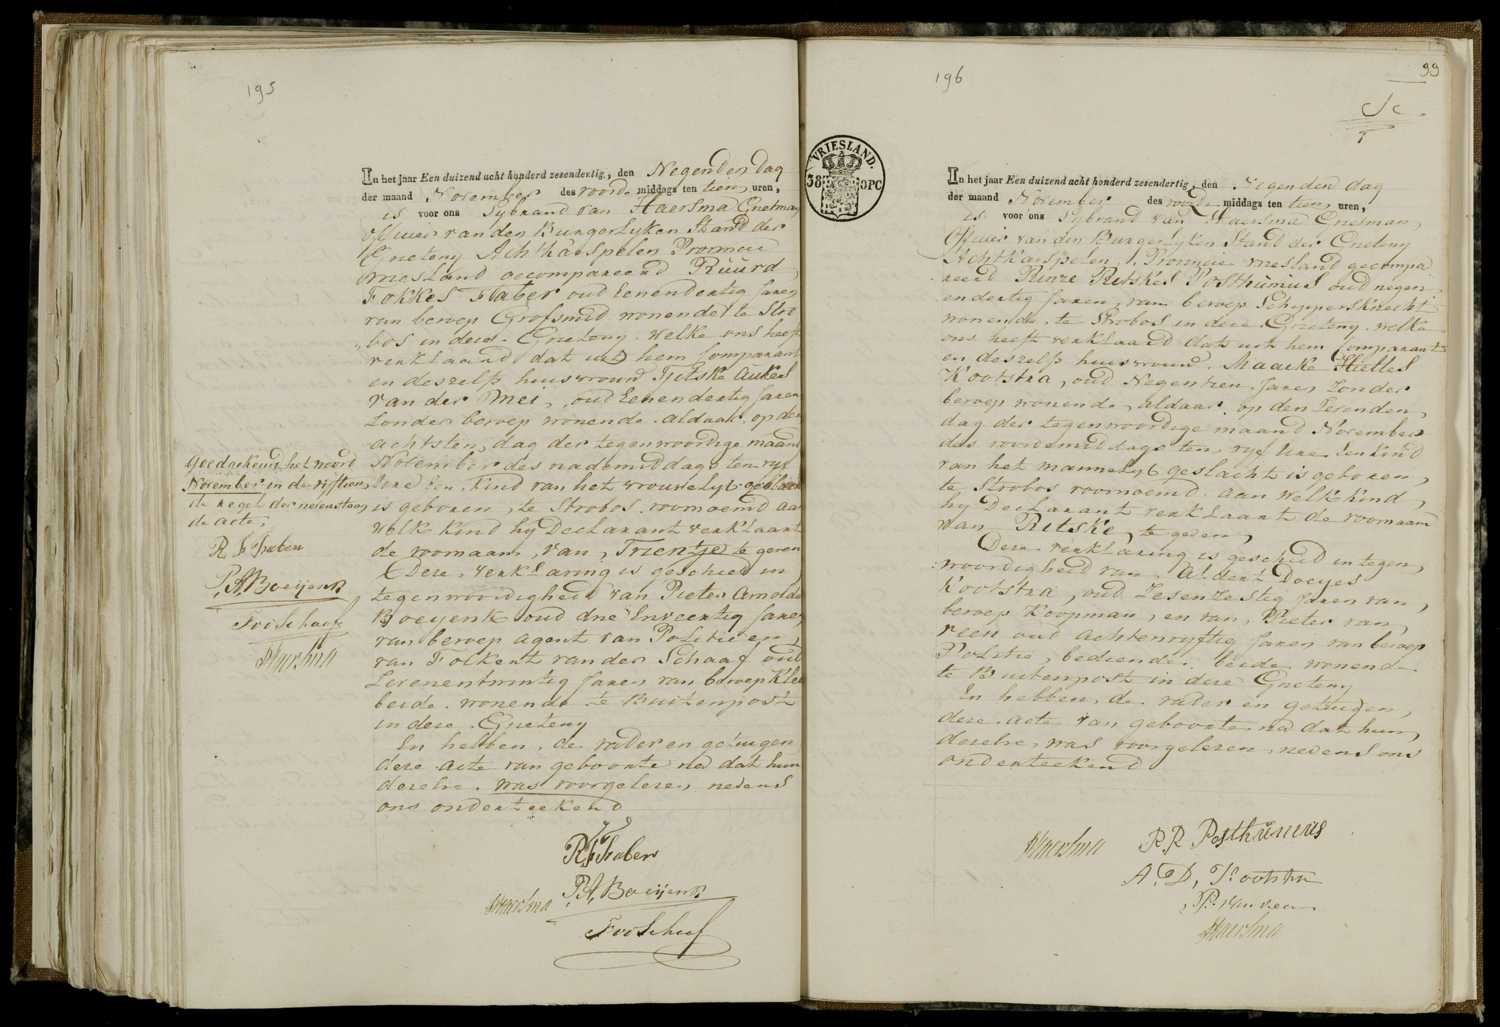 195
In het jaar Een duizend acht honderd zesendertig, den Negenden dag
der maand November des voorde middags ten tien uren,
is voor ons Sybrand van Haersma Grietman
Officier van den Burgerlyken Stand der
Grieteny Achtkarspelen Provincie
Vriesland gecompareerd Rüürd
Fokkes Haber oud Eenendertig Jaren
van beroep Grofsmid wonende te Stro
bos in deze Grieteny welke ons heeft
verklaard dat uit hem Comparant
en deszelfs huisvrouw Tjitske Aukes
van der Mei, oud Eenendertig Jaren
zonder beroep wonende aldaar, op den
achtsten dag der tegenwoordige maand
November des nademiddags ten vyf
Ure Een Kind van het vrouwelyk geslacht
is geboren, te Strobos voornoemd aan
Welk kind hy Declarant verklaart
de voornaam van, Trientje te geven
Deze verklaring is geschied in
tegenwoordigheid van Pieter Arnoldus
Boeyenk oud drie Enveertig Jaren
van beroep agent van Politie en,
van Folkert van der Schaaf oud
Zevenentwintig Jaren van beroep Kle
beide wonende te Buitenpost
in deze Grieteny
En hebben, de vader en getuigen
deze acte van geboorte na dat hun
dezelve was voorgelezen nevens
ons onderteekend
Goedgekeurd het woord
November in de vyftien
de regel der nevenstaan
de acte,
R F Haber
P. A. Boeijenk
F v d Schaaf
Haersma
R F Haber
P. A. Boeijenk
Haersma
F v d Schaaf
VRIESLAND.
38 OPC
196
99
In het jaar Een duizend acht honderd zesendertig, den Negenden dag
der maand November des voorde middags ten tien uren,
is voor ons Sybrand van Haersma Grietman,
Officier van den Burgerlyken Stand der Grieteny
Achtkarspelen, Provincie Vriesland gecompa
reerd Rinze Ritskes Posthumus oud negen
endertig Jaren, van beroep Schippersknecht
wonende te Strobos in deze Grieteny welke
ons heeft verklaard dat uit hem Comparant
en deszelfs huisvrouw Maaike Hielkes
Kootstra, oud Negentien Jaren zonder
beroep wonende, aldaar op den Tienden,
dag der tegenwoordige maand November
des voordemiddags ten, vyf Ure Een Kind
van het mannelyk geslacht is geboren,
te Strobos voornoemd aan welk kind,
hy Declarant verklaart de voornaam
van Ritske, te geven,
Deze verklaring is geschied in tegen,
woordigheid van, Aldert Doeyes
Kootstra, oud Zesenzestig Jaren van,
beroep Koopman, en van, Pieter van,
veen oud achtenvyftig Jaren van beroep
Politie, bediende, beide wonende
te Buitenpost in deze Grieteny
En hebben, de vader en getuigen,
deze acte van geboorte na dat hun,
dezelve, was voorgelezen, nevens ons
onderteekend
Haersma
R. R. Posthumus
A. D. Kootstra
P. van veen
Haersma